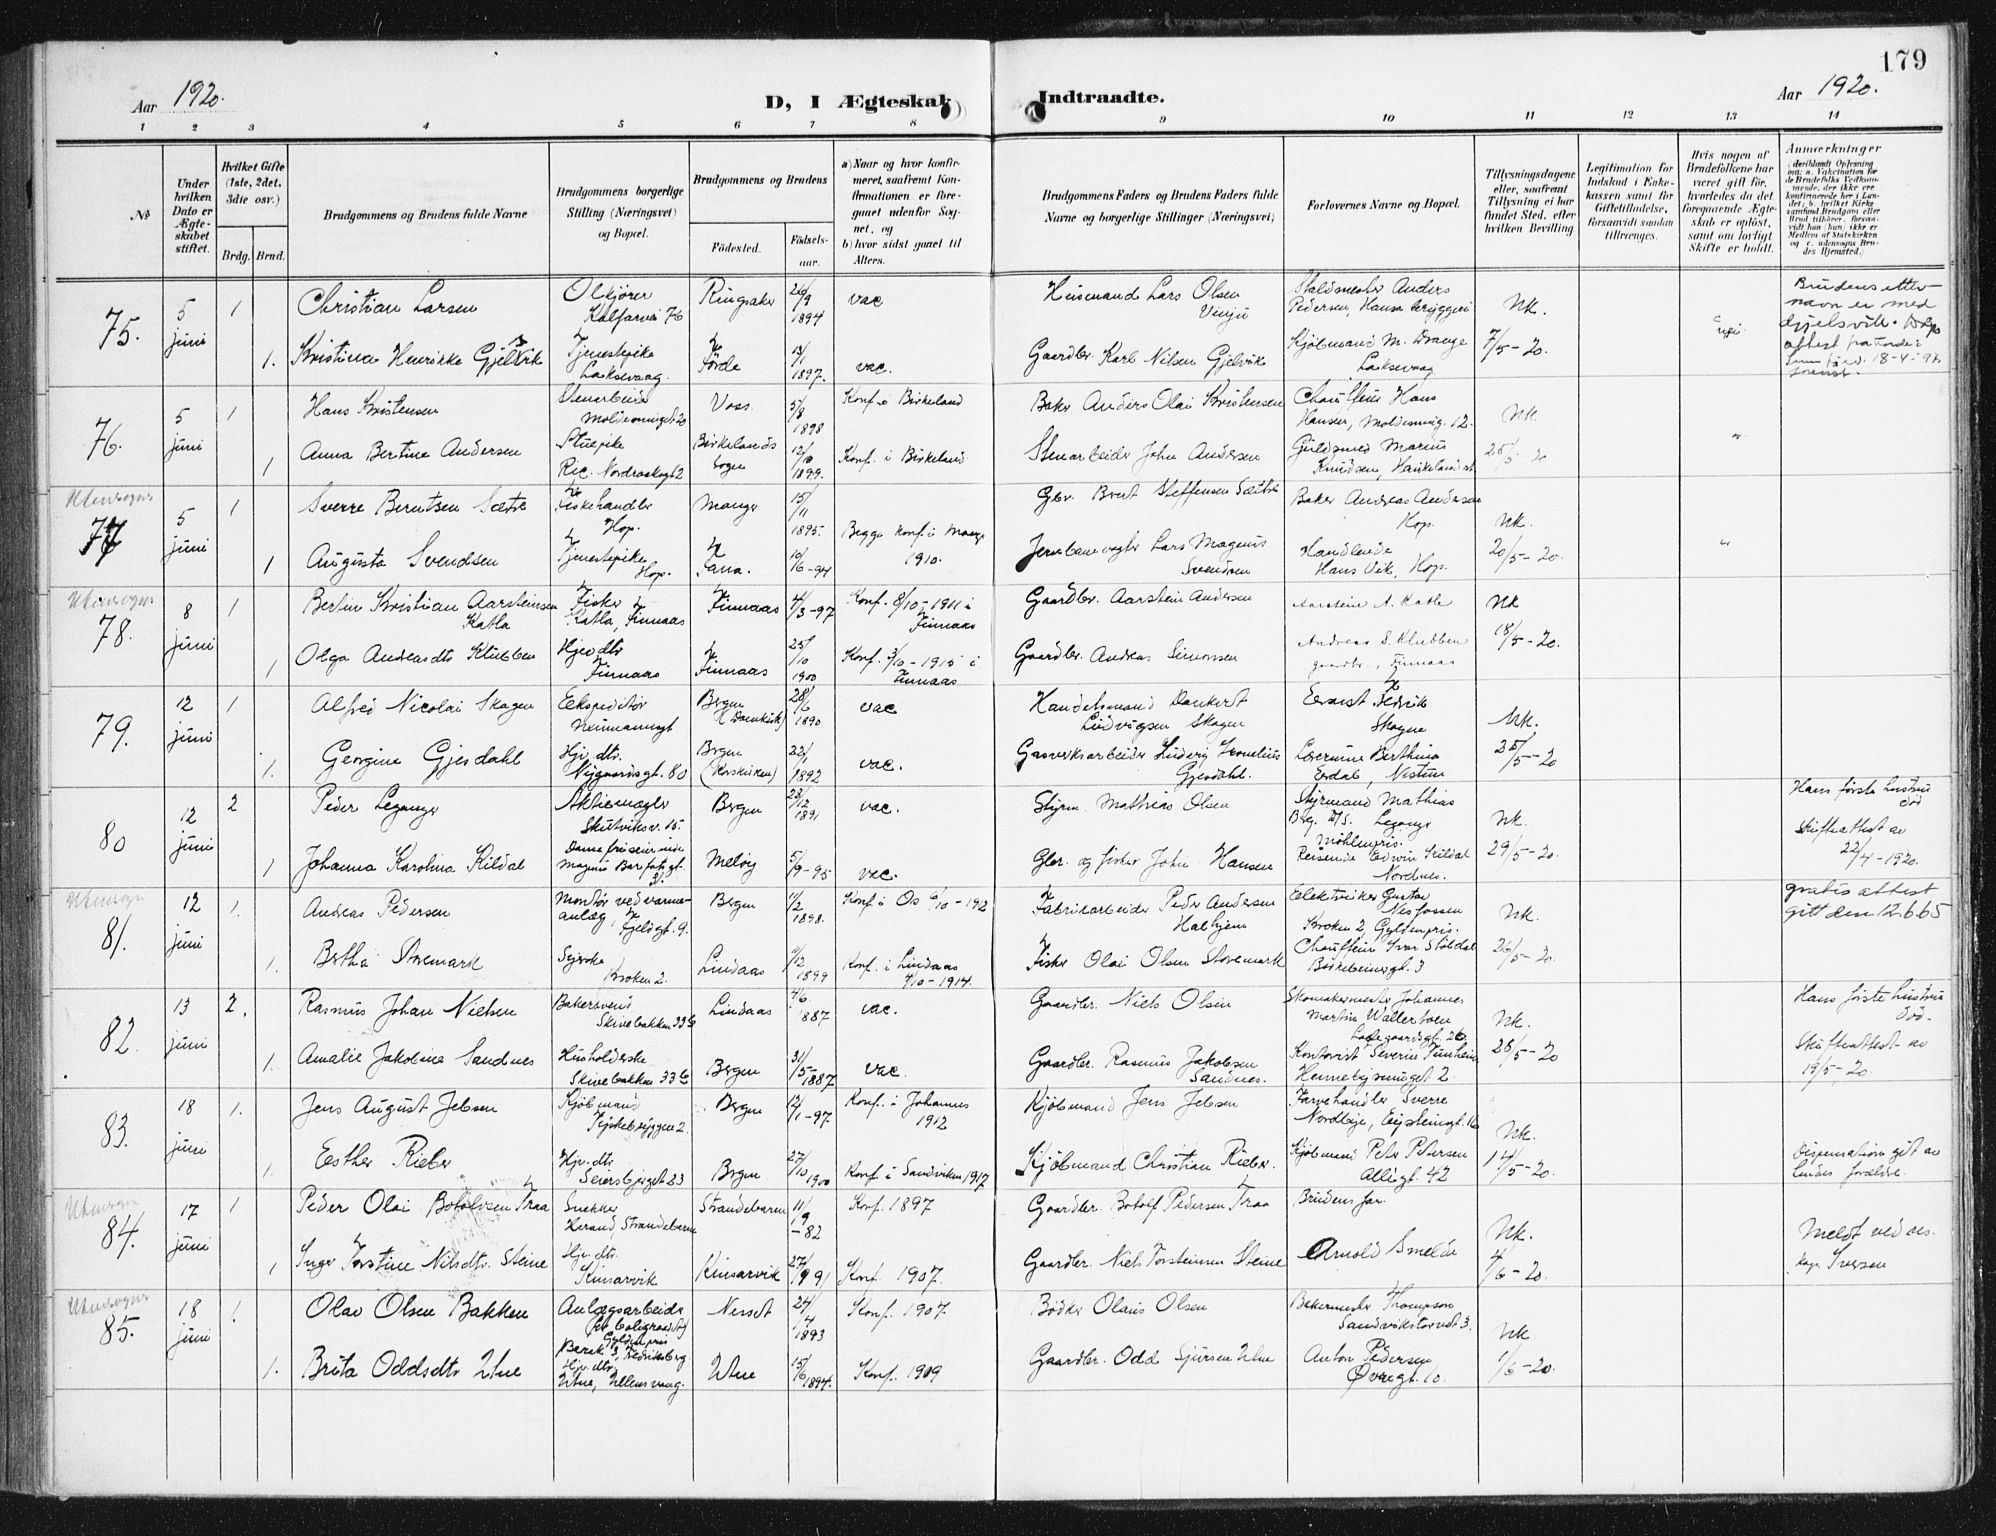 179
Aar 1920.
D, I Ægteskab Indtraadte.
Aar 1920.
1 2 3 4 5 6 7 8 9 10 11 12 13 14
№
Under hvilken Dato er Ægteskabet stiftet.
Hvilket Gifte (1ste, 2det, 3die osv.)
Brdg. Brud.
Brudgommens og Brudens fulde Navne
Brudgommens borgerlige Stilling (Næringsvei) og Bopæl.
Brudgommens og Brudens
Fødested.
Fødselsaar.
a) Naar og hvor konfirmeret, saafremt Konfirmationen er foregaaet udenfor Sognet, og
b) hvor sidst gaaet til Alters.
Brudgommens Faders og Brudens Faders fulde Navne og borgerlige Stillinger (Næringsvei)
Forlovernes Navne og Bopæl.
Tillysningsdagene eller, saafremt Tillysning ei har fundet Sted, efter hvilken Bevilling.
Legitimation for Indskud i Enkekassen samt for Giftetilladelse, forsaavidt saadan tiltrænges.
Hvis nogen af Brudefolkene har været gift før, hvorledes da det foregaaende Ægteskab er opløst, samt om lovligt Skifte er holdt.
Anmærkninger
75. 5 juni 1 Christian Larsen Kalfarvei 76 Ringsaker 26/9 1894 vac Husmand Lars Olsen Staldmester Anders Pedersen, Hansa bryggeri Nk.
1. Kristina Henrikke Gjelsvik Tjenestepike Laksevaag. Førde 1897. vac. Gaardbr. Karl Nilsen Gjelvik Kjøbmand M. Drange Laksevaag 7/5-20.
76. 5 juni 1 Hans Kristensen Voss 5/8 1898 Konf. i Birkeland Baker Anders Olai Kristensen Chauffeur Hans Hansen, 12. Nk.
1 Anna Bertine Andersen Birkelands sogn 12/10 1899. Konf. i Birkeland Stenarbeider John Andersen Guldsmed Marius Knudsen, 25/5-20
Utensogns 77 5 juni 1 Sverre Berntsen Sætre Fiskehandler Hop. Manger 15/11 1895. Gbr. Brent Steffensen Sætre Baker Andreas Andersen Hop. Nk.
1 Augusta Svendsen Tjenestepike Hop. Fana. 10/6-94 Begge konf. i Manger 1910. Jernbanevogter Lars Magnus Svendsen Handlende Hans Vik, Hop. 20/5-20.
Utensogns 78. 8 juni 1 Bertin Kristian Aarsteinsen Katla Fisker Katla, Finnaas Finnaas 4/3-97 Konf. 8/10-1911 i Finnaas Gaardbr. Aarstein Andersen Aarsteine A. Katla Nk
1 Olga Andreasdtr Klubben Hjv dtr Finnaas Finnaas 25/10 1900 Konf. 3/10-1915 i Finnaas Gaardbr. Andreas Simonsen Andreas S. Klubben gaardbr., Finnaas 18/5-20.
79. 12 juni 1 Alfred Nicolai Skagen Ekspeditør Neumannsgt Bergen (Domkirk) 28/6 1890 vac Handelsmand Dankert Ludvigsen Skagen Fredrik Skagen Nk.
1. Georgine Gjesdahl Hjv. dtr. Nygaardsgt. 80 Bergen (Korskirken) 22/1 1892 vac. Gasverksarbeider Ludvig Kornelius Gjesdahl. Berthina Erdal, Nesttun 25/5-20
80 12 juni 2 Peder Leganger Aktiemægler Skutviksv. 15. Bergen 23/12 1891 vac. Styrm. Mathias Olsen Styrmand Mathias Leganger Møhlenpris. Nk. Hans første hustru død
1 Johanna Karolina Kildal Damefriserinde Magnus Barfotsgt. Meløy 5/9-95 vac. Gbr. og fisker John Hansen Reisende Edwin Kildal Nordnes. 29/5-20. Skifteattest av 22/4-1920.
Utensogn 81. 12 juni 1. Andreas Pedersen Montør ved varmeanlæg, Fjeldgt. 9. Bergen 1898. Konf. i Os Fabrikarbeider Peder Andersen Halhjem Elektriker Gustav Nesfossen Kroken 2, Gyldenpris. Nk. gratis attest gitt den 12.6.65
1. Bertha Storemark Syerske Kroken 2. Lindaas 11/12 1899 Konf. i Lindaas 4/10-1914. Fisker Olai Olsen Storemark Chauffeur Ivar Støldal Birkebeinergt. 3 26/5-20.
82. 13 juni 2. Rasmus Johan Nielsen Bakersvend Skivebakken 33 b Lindaas 4/6. 1887 vac. Gaardbr. Niels Olsen Skomakermester Johannes Martin Wallertoen Ladegaardsgt. 26 Nk. Hans første hustru død.
1. Amalie Jakobine Sandnes Husholderske Skivebakken 33 b Bergen 31/5-1887 vac. Gaardbr. Rasmus Jakobsen Sandnes. Kontorist Severin Tunheim 2. 26/5-20 Skifteattest av 19/5-20.
83. 18 juni 1. Jens August Jebsen Kjøbmand Tyskebryggen 2. Bergen 12/1-97. Konf. i Johannes 1912 Kjøbmand Jens Jebsen Farvehandler Sverre Eysteinsgt. 16 Nk.
1. Esther Rieber Hjv. dtr. 23 Bergen 27/10 1900 Konf. i Sandviken 1917 Kjøbmand Christian Rieber. Kjøbmand Peter Petersen Allégt. 42 14/5-20. Dispensation git av forældre.
Utensogn 84. 17 juni 1 Peder Olai Botolvsen Traa Snekker Herand, Strandebarm Strandebarm 11/9-82 Konf. 1897 Gaardbr. Botolf Pedersen Traa Brudens far. Nk.
1 Inger Torstine Nilsdtr. Steine Hjv. dtr. Kinsarvik Kinsarvik 27/9 91 Konf. 1907. Gaardbr. Niels Torsteinsen Steine Arnold Smelde 4/6-20. Meldt ved res. kap. Iversen
Utensogns 85. 18 juni 1. Olav Olsen Bakken Anlægsarbeider Gyldenpris Nesset 24/4 1893 Konf. 1907. Bødker Olaus Olsen Bakermester Thompson Sandvikstorvet 3. Nk
1. Brita Oddsdtr Utne Hjv. dtr. Utne, Ullensvang. Utne 15/6 1894. Konf. 1909 Gaardbr. Odd Sjursen Utne Anton Pedersen Øvregt. 10. 1/6-20.